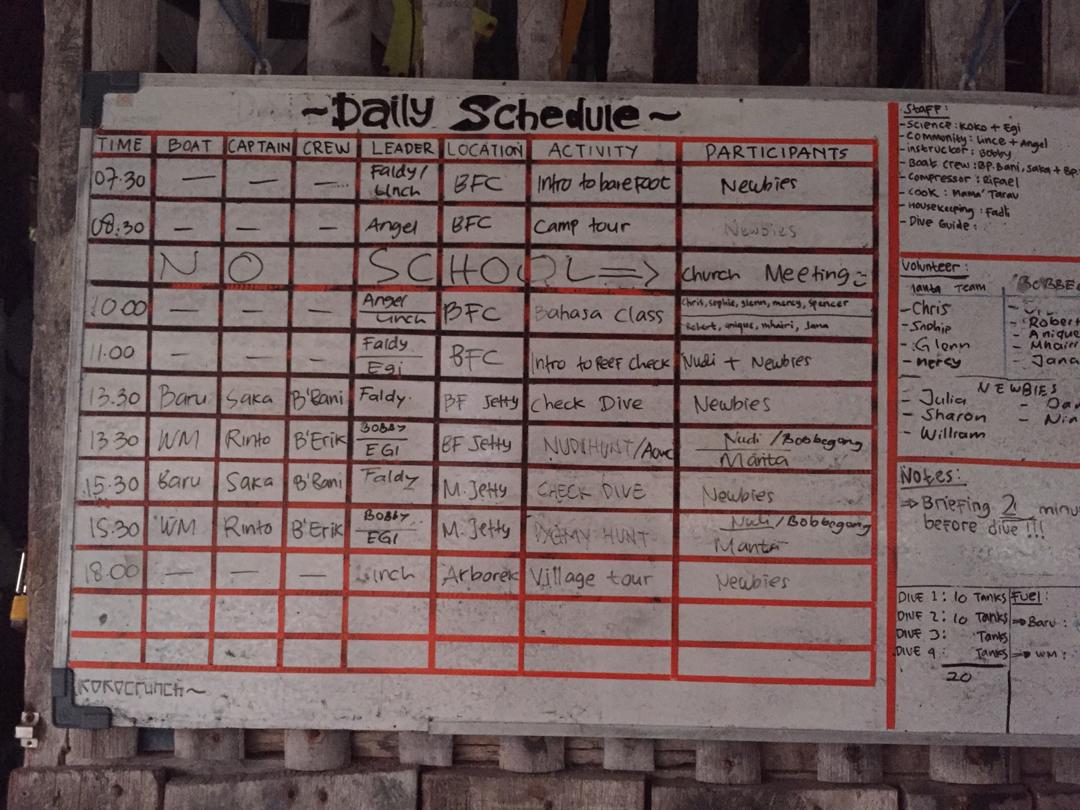 ~Daily Schedule~
TIME BOAT CAPTAIN CREW LEADER LOCATION ACTIVITY PARTICIPANTS
07.30 — — — Faldy/ Linch BFC Intro to barefoot Newbies
08.30 — — — Angel BFC Camp tour Newbies
NO SCHOOL => Church Meeting
10.00 — — — Angel Linch BFC Bahasa Class Chris, sophie, glenn, mercy, spencer
Robert, anique, mhairi, Jana
11.00 — — — Faldy Egi BFC Intro to Reef Check Nudi + Newbies
13.30 Baru Saka B'Bani Faldy BF Jetty Check Dive Newbies
13.30 WM Rinto B'Erik BOBBY EGI BF Jetty NUDIHUNT/ Nudi/Bobbegong Manta
15.30 Baru Saka B'Bani Faldy M.Jetty CHECK DIVE Newbies
15.30 WM Rinto B'Erik BOBBY EGI M.Jetty HUNT Nudi/Bobbegong Manta
18.00 — — — Linch Arborek Village tour Newbies
KOKOCRUNCH~
Staff:
- Science: Koko + Egi
- Community: Lince + Angel
- instructor: Bobby
- Boat crew: BP.Bani, Saka + BP.
- Compressor: Rifael
- Cook: Mama' Tarau
- Housekeeping: Fadli
- Dive Guide:
Volunteer:
Manta Team
- Chris
- Sophie
- Glenn
- mercy
BOBBE
- Robert
- Anique
- Mhairi
- Jana
NEWBIES
- Julia
- Sharon
- William
Notes:
=> Briefing 2 minu
before dive !!!
DIVE 1: 10 Tanks
DIVE 2: 10 Tanks
DIVE 3: Tanks
DIVE 4: Tanks
20
Fuel:
=> Baru:
=> WM: